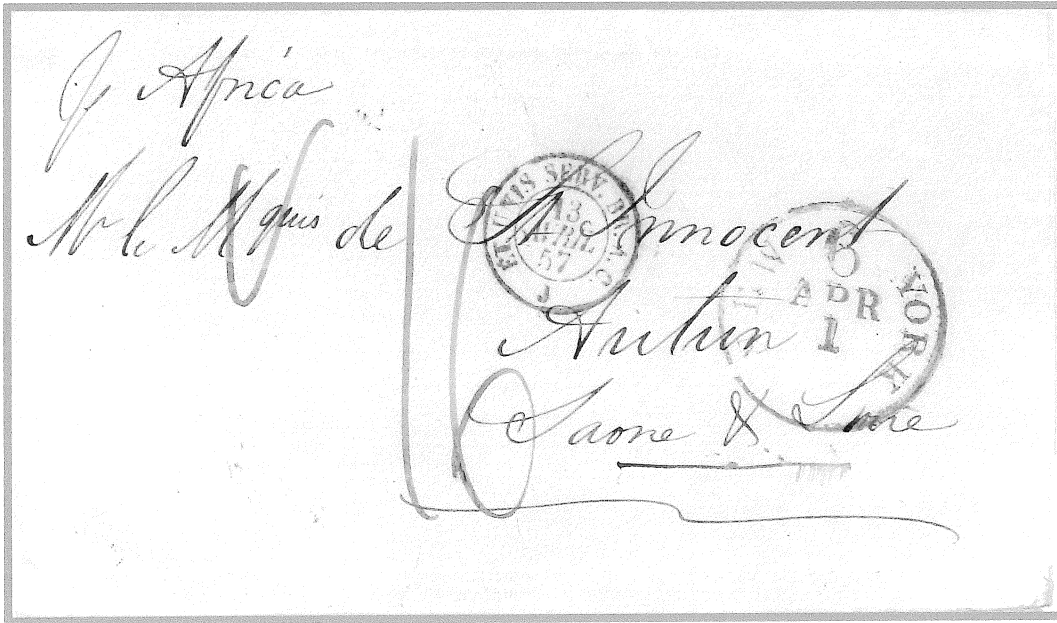 Pr Africa
Mr le Mquis de St Innocent
Autun
Saone & Loire
16
ET. UNIS SERV. BR. A. C.
13
AVRIL
57
J
NEW YORK
6
APR
1